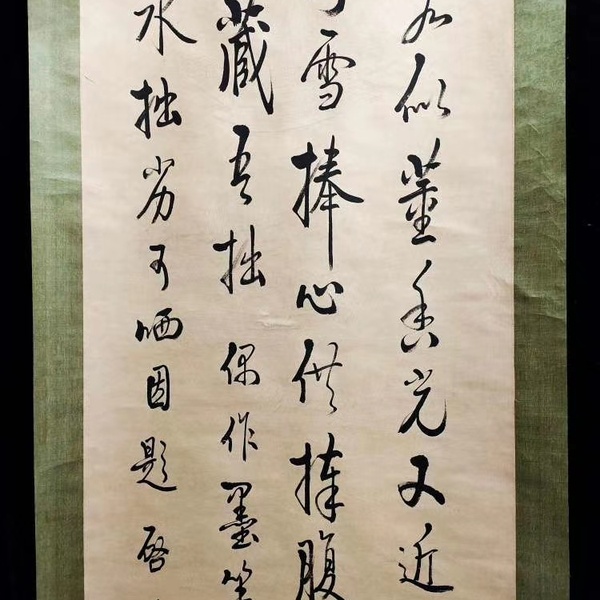 似董香光又近
雪捧心供捧腹
藏吾拙偶作墨
水拙劣可哂因題啓